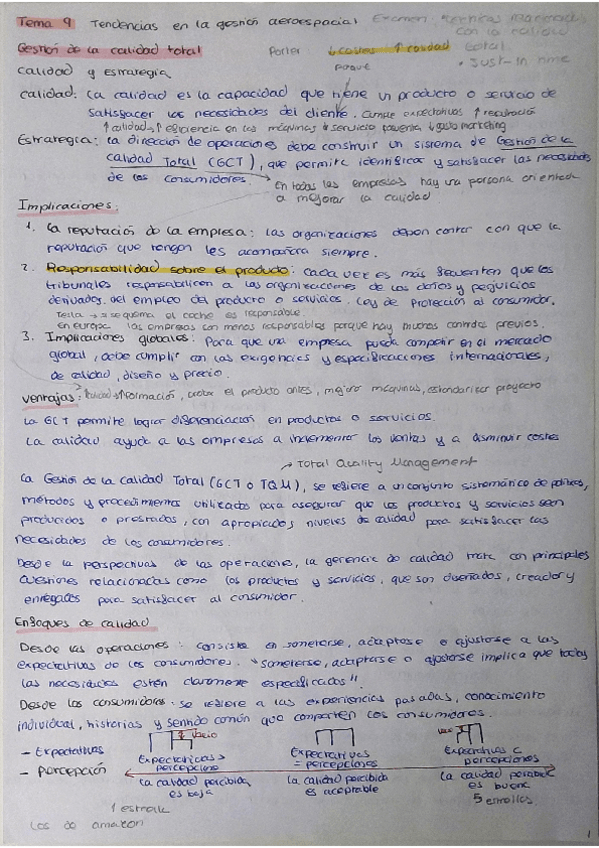 Tema 9 Tendencias en la gestión aeroespacial Examen,
con la calidad
Gestión de la calidad total Porter ↓costes ↑calidad total
porque • Just-in time
Calidad y estrategia
Calidad: La calidad es la capacidad que tiene un producto o servicio de
satisfacer las necesidades del cliente. Cumple expectativas ↑reputación
↑calidad → ↑eficiencia en las máquinas servicio ↓gasto marketing
Estrategia: la dirección de operaciones debe construir un sistema de Gestión de la
calidad Total (GCT), que permite identificar y satisfacer las necesidades
de los consumidores.
→ en todas las empresas hay una persona orientada
a mejorar la calidad
Implicaciones:
1. La reputación de la empresa: las organizaciones deben contar con que la
reputación que tengan les acompañara siempre.
2. Responsabilidad sobre el producto: cada vez es más frecuenten que los
tribunales responsabilicen a las organizaciones de los daños y perjuicios
derivados del empleo del producto o servicios. Ley de Protección al consumidor.
Tesla → se quema el coche es responsable.
en Europa las empresas son menos responsables porque hay muchos controles previos.
3. Implicaciones globales: Para que una empresa pueda competir en el mercado
global, debe cumplir con las exigencias y especificaciones internacionales,
de calidad, diseño y precio.
Ventajas: formación, el producto antes, mejora máquinas, estandarizar proyecto
La GCT permite lograr diferenciación en productos o servicios.
La calidad ayuda a las empresas a incrementar las ventas y a disminuir costes
→ Total Quality Management
La Gestión de la calidad Total (GCT o TQM), se refiere a un conjunto sistemático de políticas,
métodos y procedimientos utilizados para asegurar que los productos y servicios sean
producidos o prestados, con apropiados niveles de calidad para satisfacer las
necesidades de los consumidores.
Desde la perspectiva de las operaciones, la gerencia de calidad trata con principales
cuestiones relacionadas como los productos y servicios, que son diseñados, creados y
entregados para satisfacer al consumidor.
Enfoques de calidad
Desde las operaciones: consiste en someterse, adaptarse o ajustarse a las
expectativas de los consumidores. "someterse, adaptarse o ajustarse implica que todas
las necesidades estén claramente especificadas".
Desde los consumidores: se refiere a las experiencias pasadas, conocimiento
individual, historias y sentido común que comparten los consumidores.
vacío
- Expectativas Expectativas > Expectativas Expectativas <
percepciones = percepciones percepciones
- Percepción
La calidad percibida La calidad percibida La calidad percibida
es baja es aceptable es buena
1 estrella 5 estrellas
Las de amazon
1